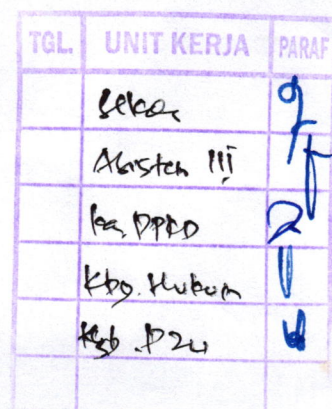 TGL. UNIT KERJA PARAF
Sekda
Asisten III
Ka. DPPKD
Kbg. Hukum